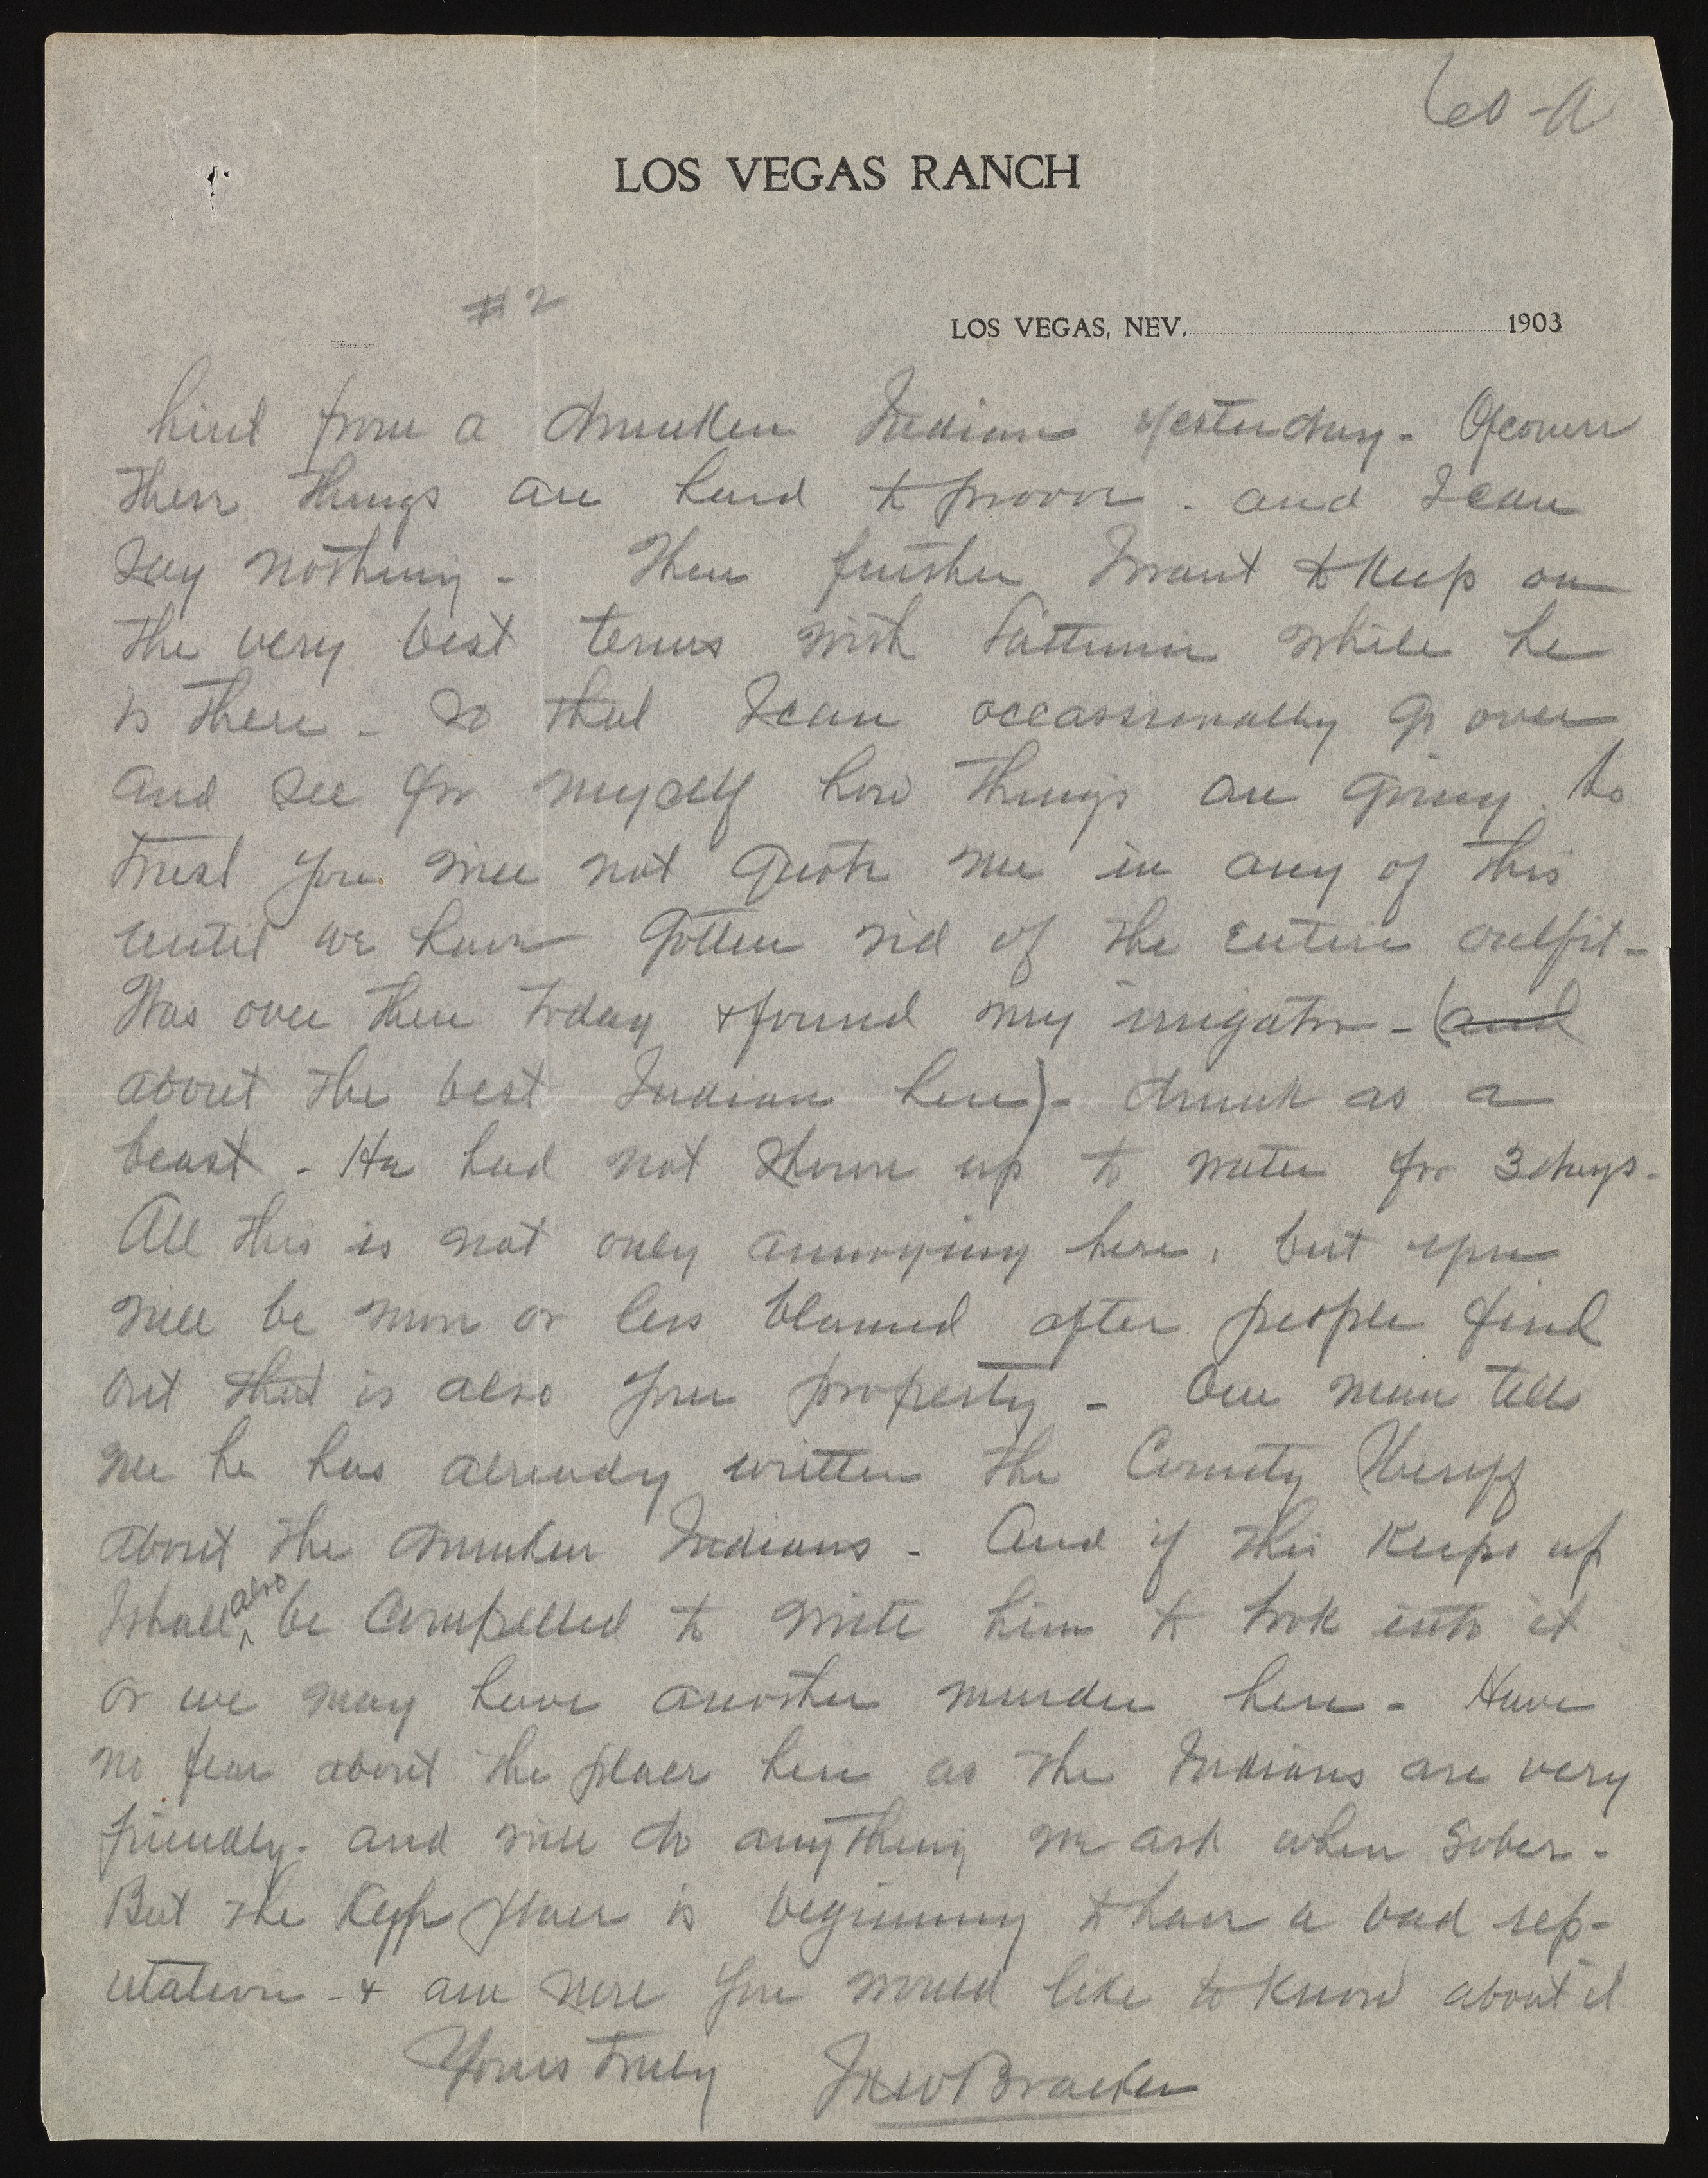 60-A
LOS VEGAS RANCH
#2
LOS VEGAS, NEV. 1903
hint from a drunken Indian yesterday - Of course
these things are hard to prove. and I can
say nothing - Then further I want to keep on
the very best terms with while he
is there - so that I can occassionally go over
and see for myself how things are going. So
trust you will not quote me in any of this
until we have gotten rid of the entire outfit -
Was over there today + found my irrigator - (and
about the best Indian here) - drunk as a
beast - He had not shown up to water for 3 days -
All this is not only annoying here, but you
will be more or less blamed after people find
out that is also your property - One man tells
me he has already written the County Sheriff
about the drunken Indians - And if this keeps up
I shall also be compelled to write him to look into it
or we may have another murder here - Have
no fear about the place here as the Indians are very
friendly - and will do anything we ask when sober -
But the Kyle place is beginning to have a bad rep-
utation - + am sure you would like to know about it
Yours truly JNW Bracken